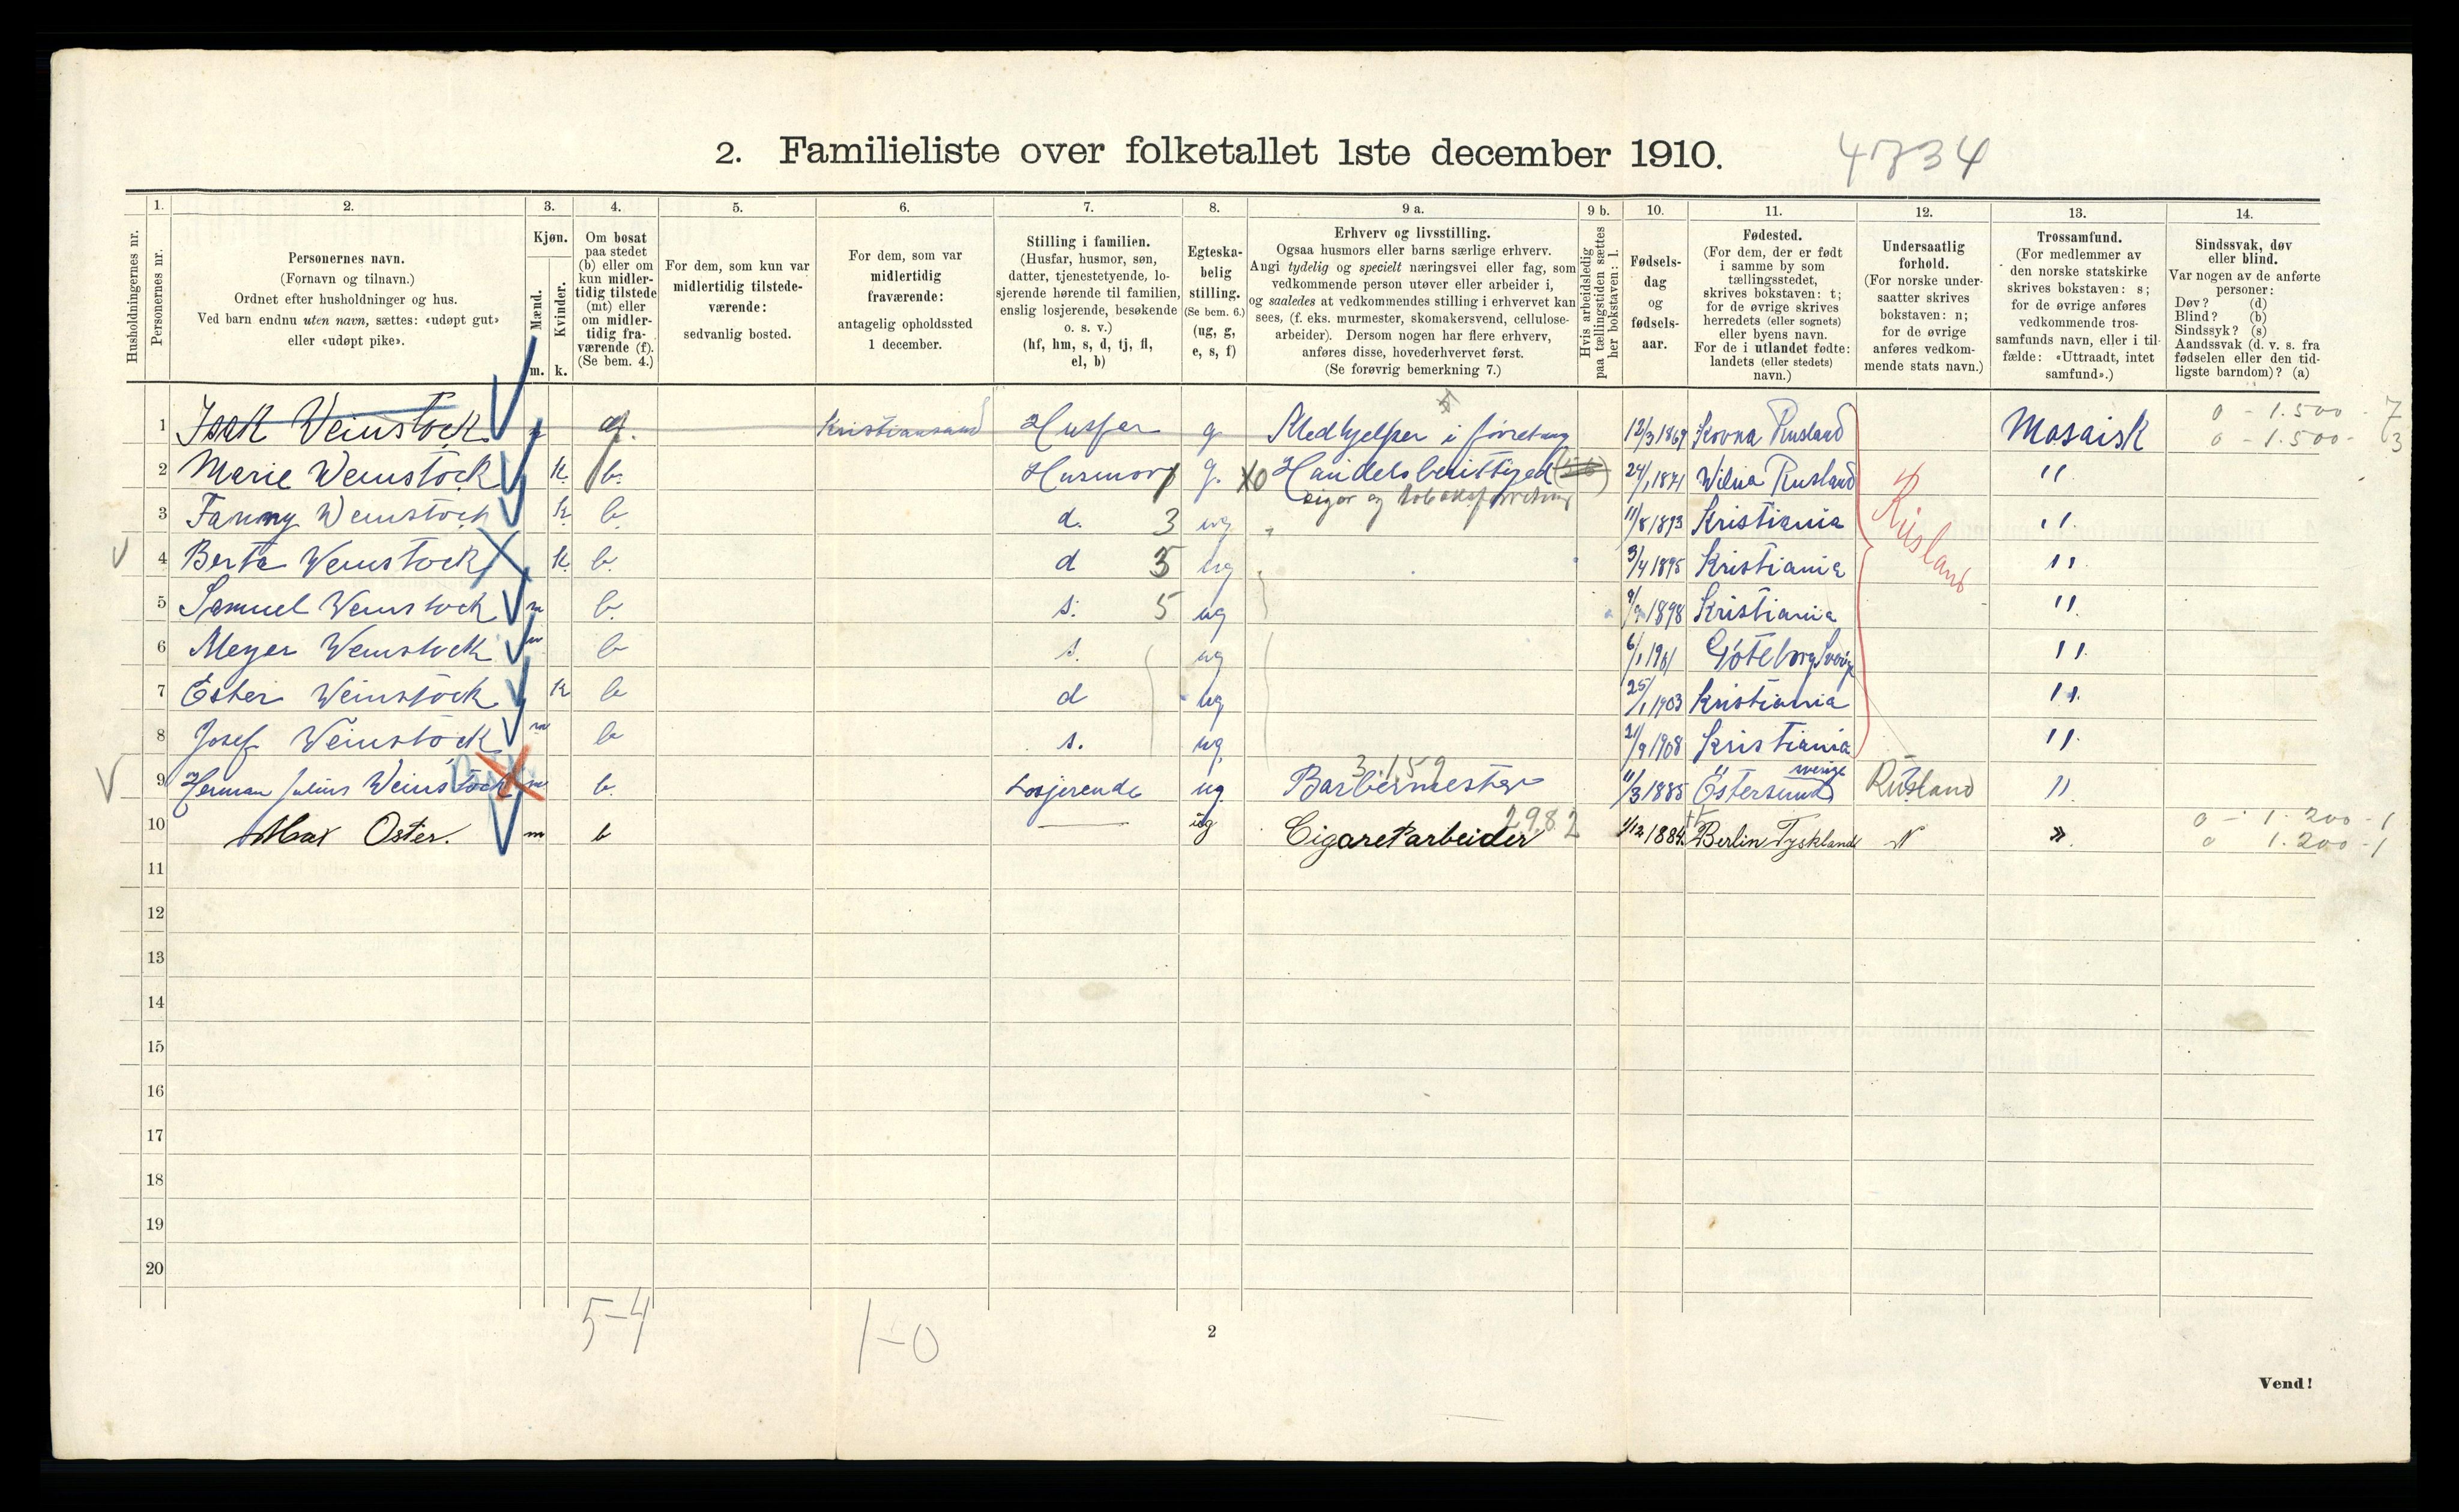 2. Familieliste over folketallet 1ste december 1910.
4734
1. 2. 3. 4. 5. 6. 7. 8. 9 a. 9 b. 10. 11. 12. 13. 14.
Husholdningernes nr.
Personernes nr.
Personernes navn.
(Fornavn og tilnavn.)
Ordnet efter husholdninger og hus.
Ved barn endnu uten navn, sættes: «udøpt gut»
eller «udøpt pike».
Kjøn.
Mænd.
m.
Kvinder.
k.
Om bosat
paa stedet
(b) eller om
kun midler-
tidig tilstede
(mt) eller
om midler-
tidig fra-
værende (f).
(Se bem. 4.)
For dem, som kun var
midlertidig tilstede-
værende:
sedvanlig bosted.
For dem, som var
midlertidig
fraværende:
antagelig opholdssted
1 december.
Stilling i familien.
(Husfar, husmor, søn,
datter, tjenestetyende, lo-
sjerende hørende til familien,
enslig losjerende, besøkende
o. s. v.)
(hf, hm, s, d, tj, fl,
el, b)
Egteska-
belig
stilling.
(Se bem. 6.)
(ug, g,
e, s, f)
Erhverv og livsstilling.
Ogsaa husmors eller barns særlige erhverv.
Angi tydelig og specielt næringsvei eller fag, som
vedkommende person utøver eller arbeider i,
og saaledes at vedkommendes stilling i erhvervet kan
sees, (f. eks. murmester, skomakersvend, cellulose-
arbeider). Dersom nogen har flere erhverv,
anføres disse, hovederhvervet først.
(Se forøvrig bemerkning 7.)
Hvis arbeidsledig
paa tællingstiden sættes
her bokstaven: l.
Fødsels-
dag
og
fødsels-
aar.
Fødested.
(For dem, der er født
i samme by som
tællingsstedet,
skrives bokstaven: t;
for de øvrige skrives
herredets (eller sognets)
eller byens navn.
For de i utlandet fødte:
landets (eller stedets)
navn.)
Undersaatlig
forhold.
(For norske under-
saatter skrives
bokstaven: n;
for de øvrige
anføres vedkom-
mende stats navn.)
Trossamfund.
(For medlemmer av
den norske statskirke
skrives bokstaven: s;
for de øvrige anføres
vedkommende tros-
samfunds navn, eller i til-
fælde: «Uttraadt, intet
samfund».)
Sindssvak, døv
eller blind.
Var nogen av de anførte
personer:
Døv? (d)
Blind? (b)
Sindssyk? (s)
Aandssvak (d. v. s. fra
fødselen eller den tid-
ligste barndom)? (a)
1 Isak Weinstock Kristiansand Husfar g Medhjelper i forretning 12/3 1869 Kovna Rusland Mosaisk 0 - 1.500 - 7
0 - 1.500 - 3
2 Marie Weinstock k. b. Husmor g. Handelsberettiged 24/1 1871 Wilna Rusland "
cigar og tobaksforretning
3 Fanny Weinstock k. b. d. 3 ug 11/8 1893 Kristiania "
4 Berta Weinstock k. b. d 5 ug 3/4 1895 Kristiania "
Rusland
5 Samuel Weinstock m b. s. 5 ug 1898 Kristiania "
6 Meyer Weinstock m b s. ug 6/1 1901 Göteborg Sverige "
7 Ester Weinstock k b d ug 25/1 1903 Kristiania "
8 Josef Weinstock m b s. ug 21/9 1908 Kristiania "
3159
9 Herman Julius Weinstock m b. Losjerende ug. Barbermester 11/3 1885 Östersund sverige Rusland "
2982
10 Max Oster. m b — ug Cigaretarbeider 1/12 1884. Berlin Tyskland N " 0 - 1.200 - 1
0 1.200 - 1
11
12
13
14
15
16
17
18
19
20
5-4
1-0
2
Vend!